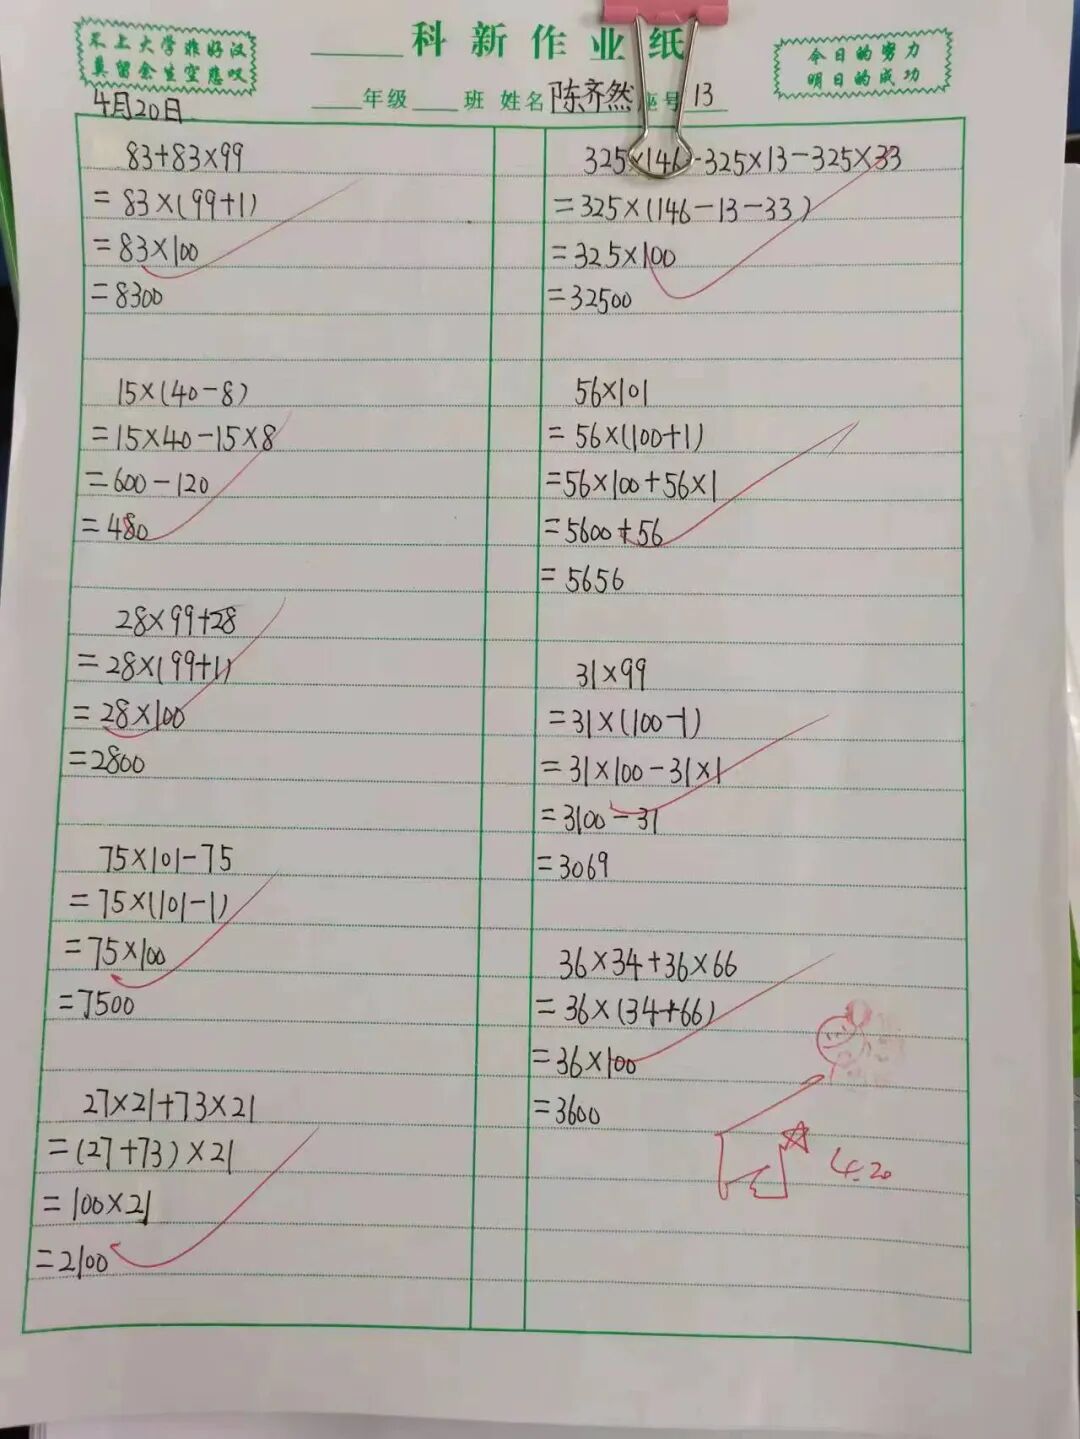 不上大学非好汉
莫留余生空悲叹
科新作业纸
今日的努力
明日的成功
年级 班 姓名 陈齐然 座号 13
4月20日
83+83×99
=83×(99+1)
=83×100
=8300
15×(40-8)
=15×40-15×8
=600-120
=480
28×99+28
=28×(99+1)
=28×100
=2800
75×101-75
=75×(101-1)
=75×100
=7500
27×21+73×21
=(27+73)×21
=100×21
=2100
325×146-325×13-325×33
=325×(146-13-33)
=325×100
=32500
56×101
=56×(100+1)
=56×100+56×1
=5600+56
=5656
31×99
=31×(100-1)
=31×100-31×1
=3100-31
=3069
36×34+36×66
=36×(34+66)
=36×100
=3600
4.20